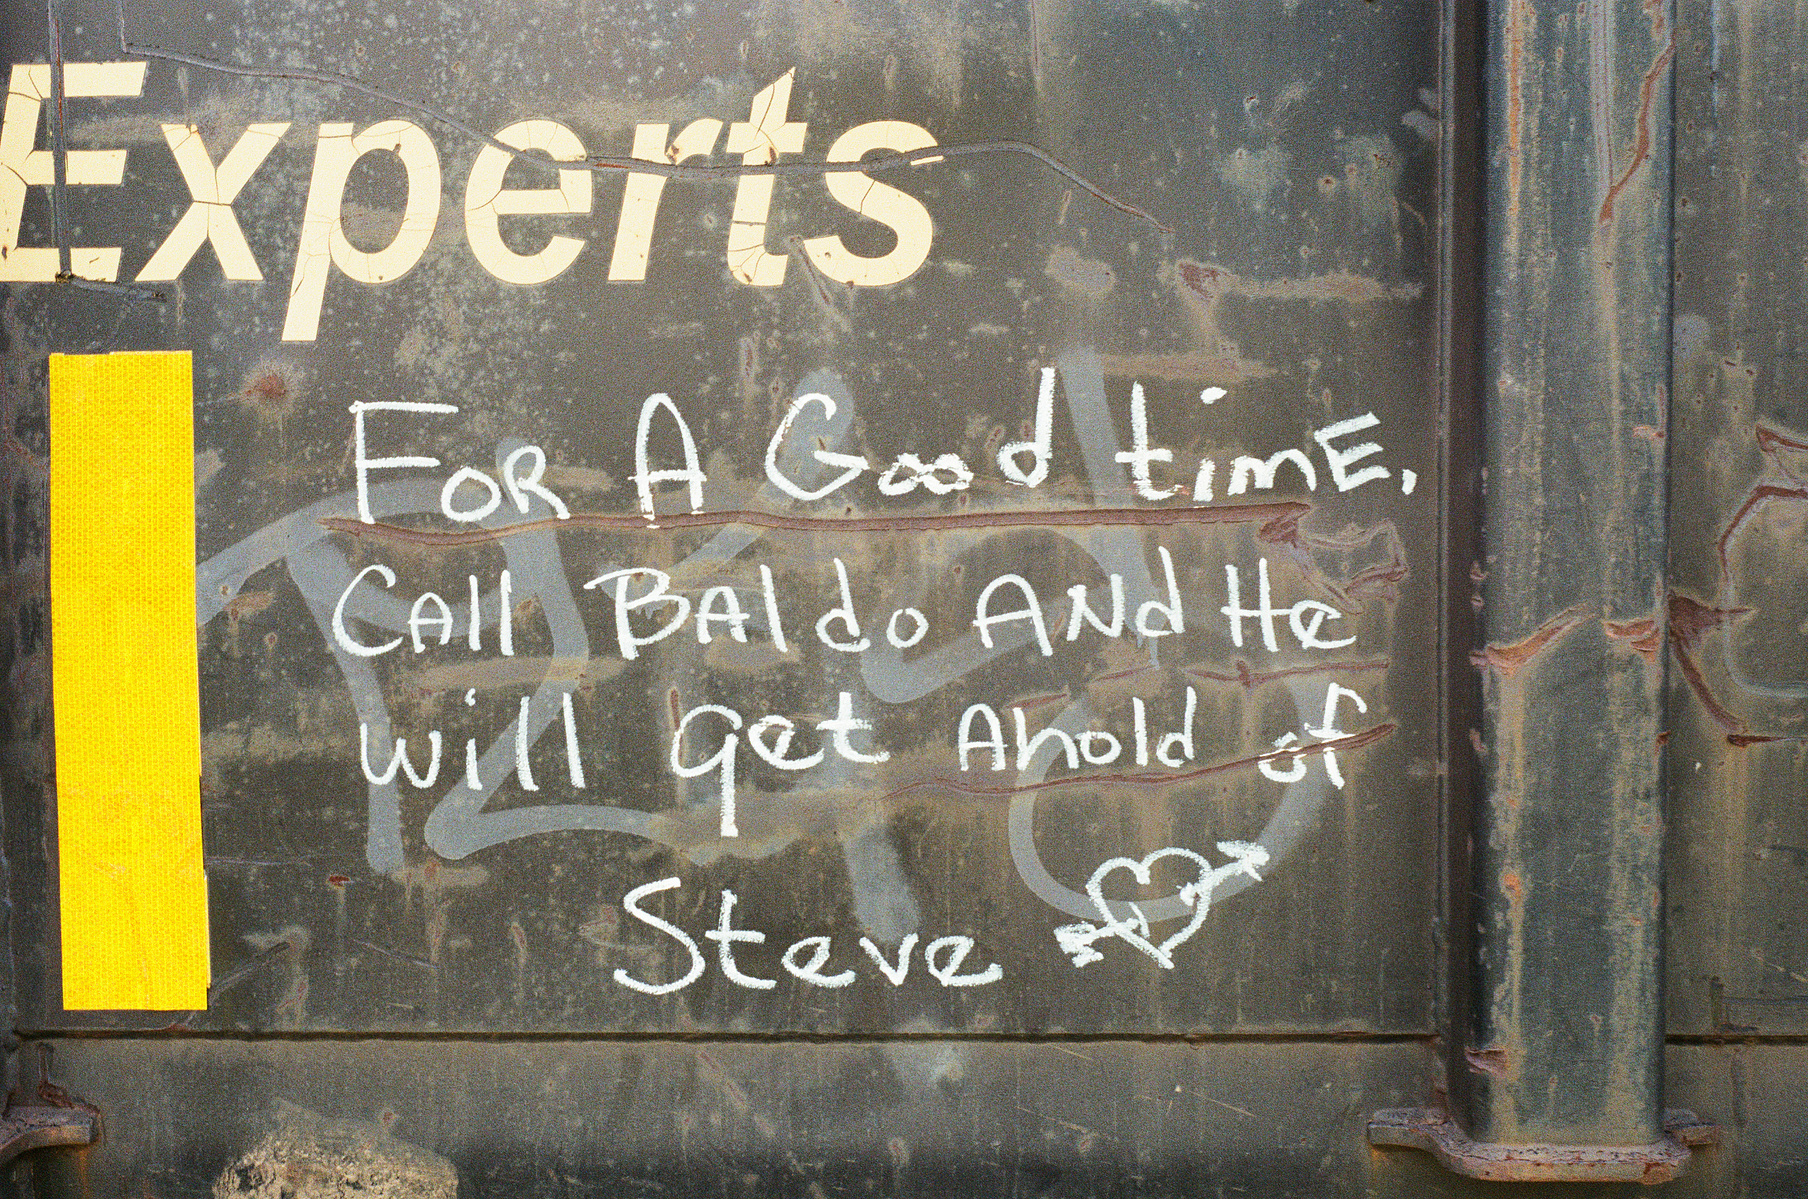 Experts
FOR A Good timE,
CAll BAldo ANd He
will get Ahold of
Steve